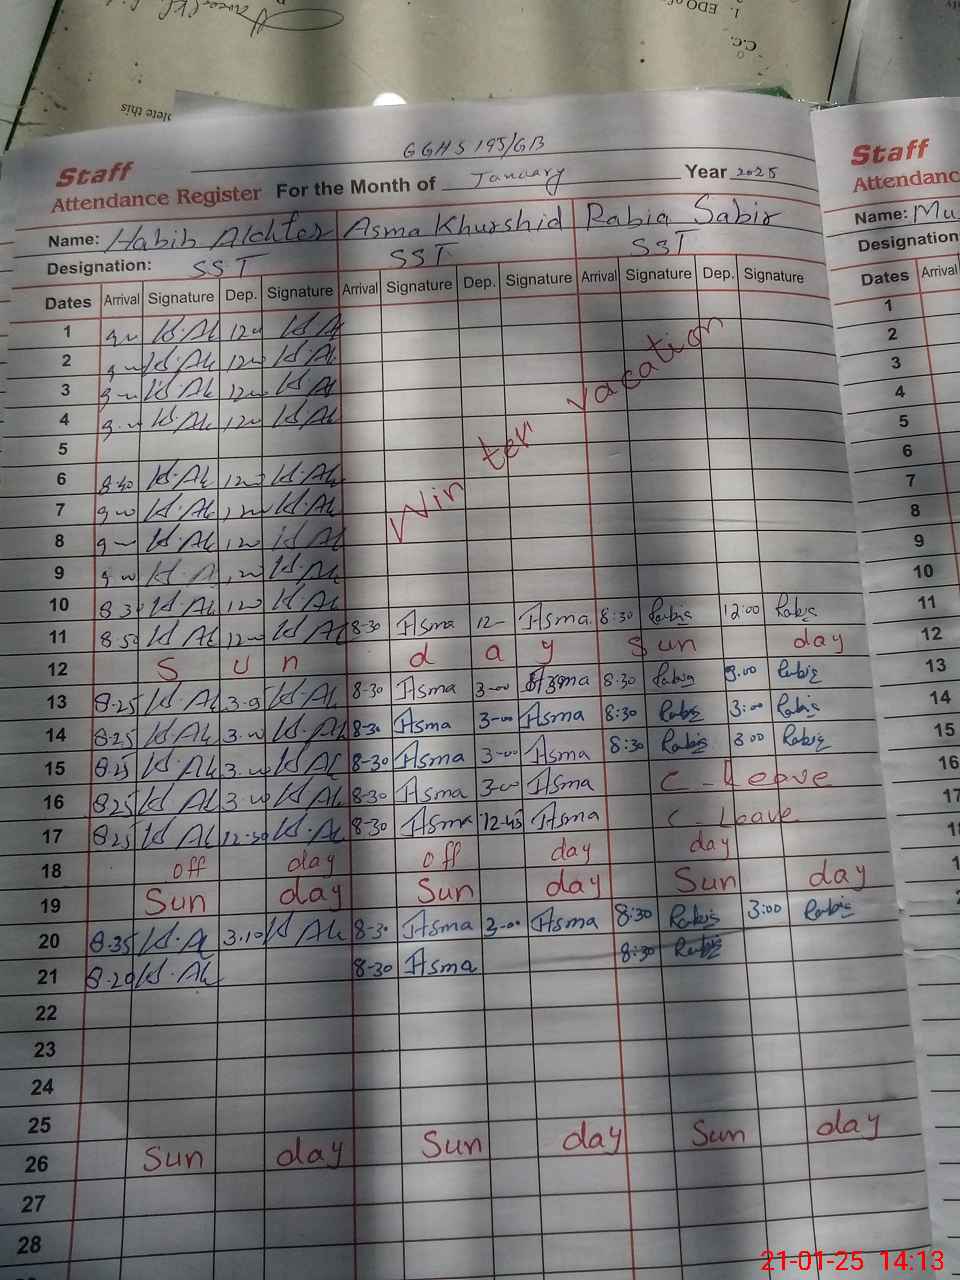 1. EDO
C.C.
lete this
GGHS 195/GB
Staff
Attendance Register For the Month of January Year 2025
Name: Habib Akhter Asma Khurshid Rabia Sabir
Designation: SST SST SST
Dates Arrival Signature Dep. Signature Arrival Signature Dep. Signature Arrival Signature Dep. Signature
1 H.Ak H.Ak
2 H.Ak H.Ak
3 H.Ak H.Ak
4 H.Ak H.Ak
5
6 8.40 H.Ak H.Ak
7 H.Ak H.Ak
8 H.Ak H.Ak
9 H.A H.Ak
Winter vacation
10 8.30 H.Ak H.Ak
11 8.50 H.Ak H.Ak 8-30 Asma 12- Asma 8:30 Rabia 12:00 Rabia
12 S u n d a y Sun day
13 8.25 H.Ak H.Ak 8-30 Asma 3-00 Asma 8:30 Rabia 3.00 Rabia
14 8.25 H.Ak H.Ak 8-30 Asma 3-00 Asma 8:30 Rabia 3:00 Rabia
15 8.25 H.Ak H.Ak 8-30 Asma 3-00 Asma 8:30 Rabia 3 00 Rabia
16 8.25 H.Ak H.Ak 8-30 Asma 3-00 Asma C-Leave
17 8.25 H.Ak 12-30 H.Ak 8-30 Asma 12-45 Asma C-Leave
18 off day off day day
19 Sun day Sun day Sun day
20 8.35 H.A 3.10 H Ak 8-30 Asma 3-00 Asma 8:30 Rabia 3:00 Rabia
21 8.20 H.Ak 8-30 Asma 8:30 Rabia
22
23
24
25
26 Sun day Sun day Sun day
27
28
Staff
Attendanc
Name: Mu
Designation
Dates Arrival
1
2
3
4
5
6
7
8
9
10
11
12
13
14
15
16
17
21-01-25 14:13